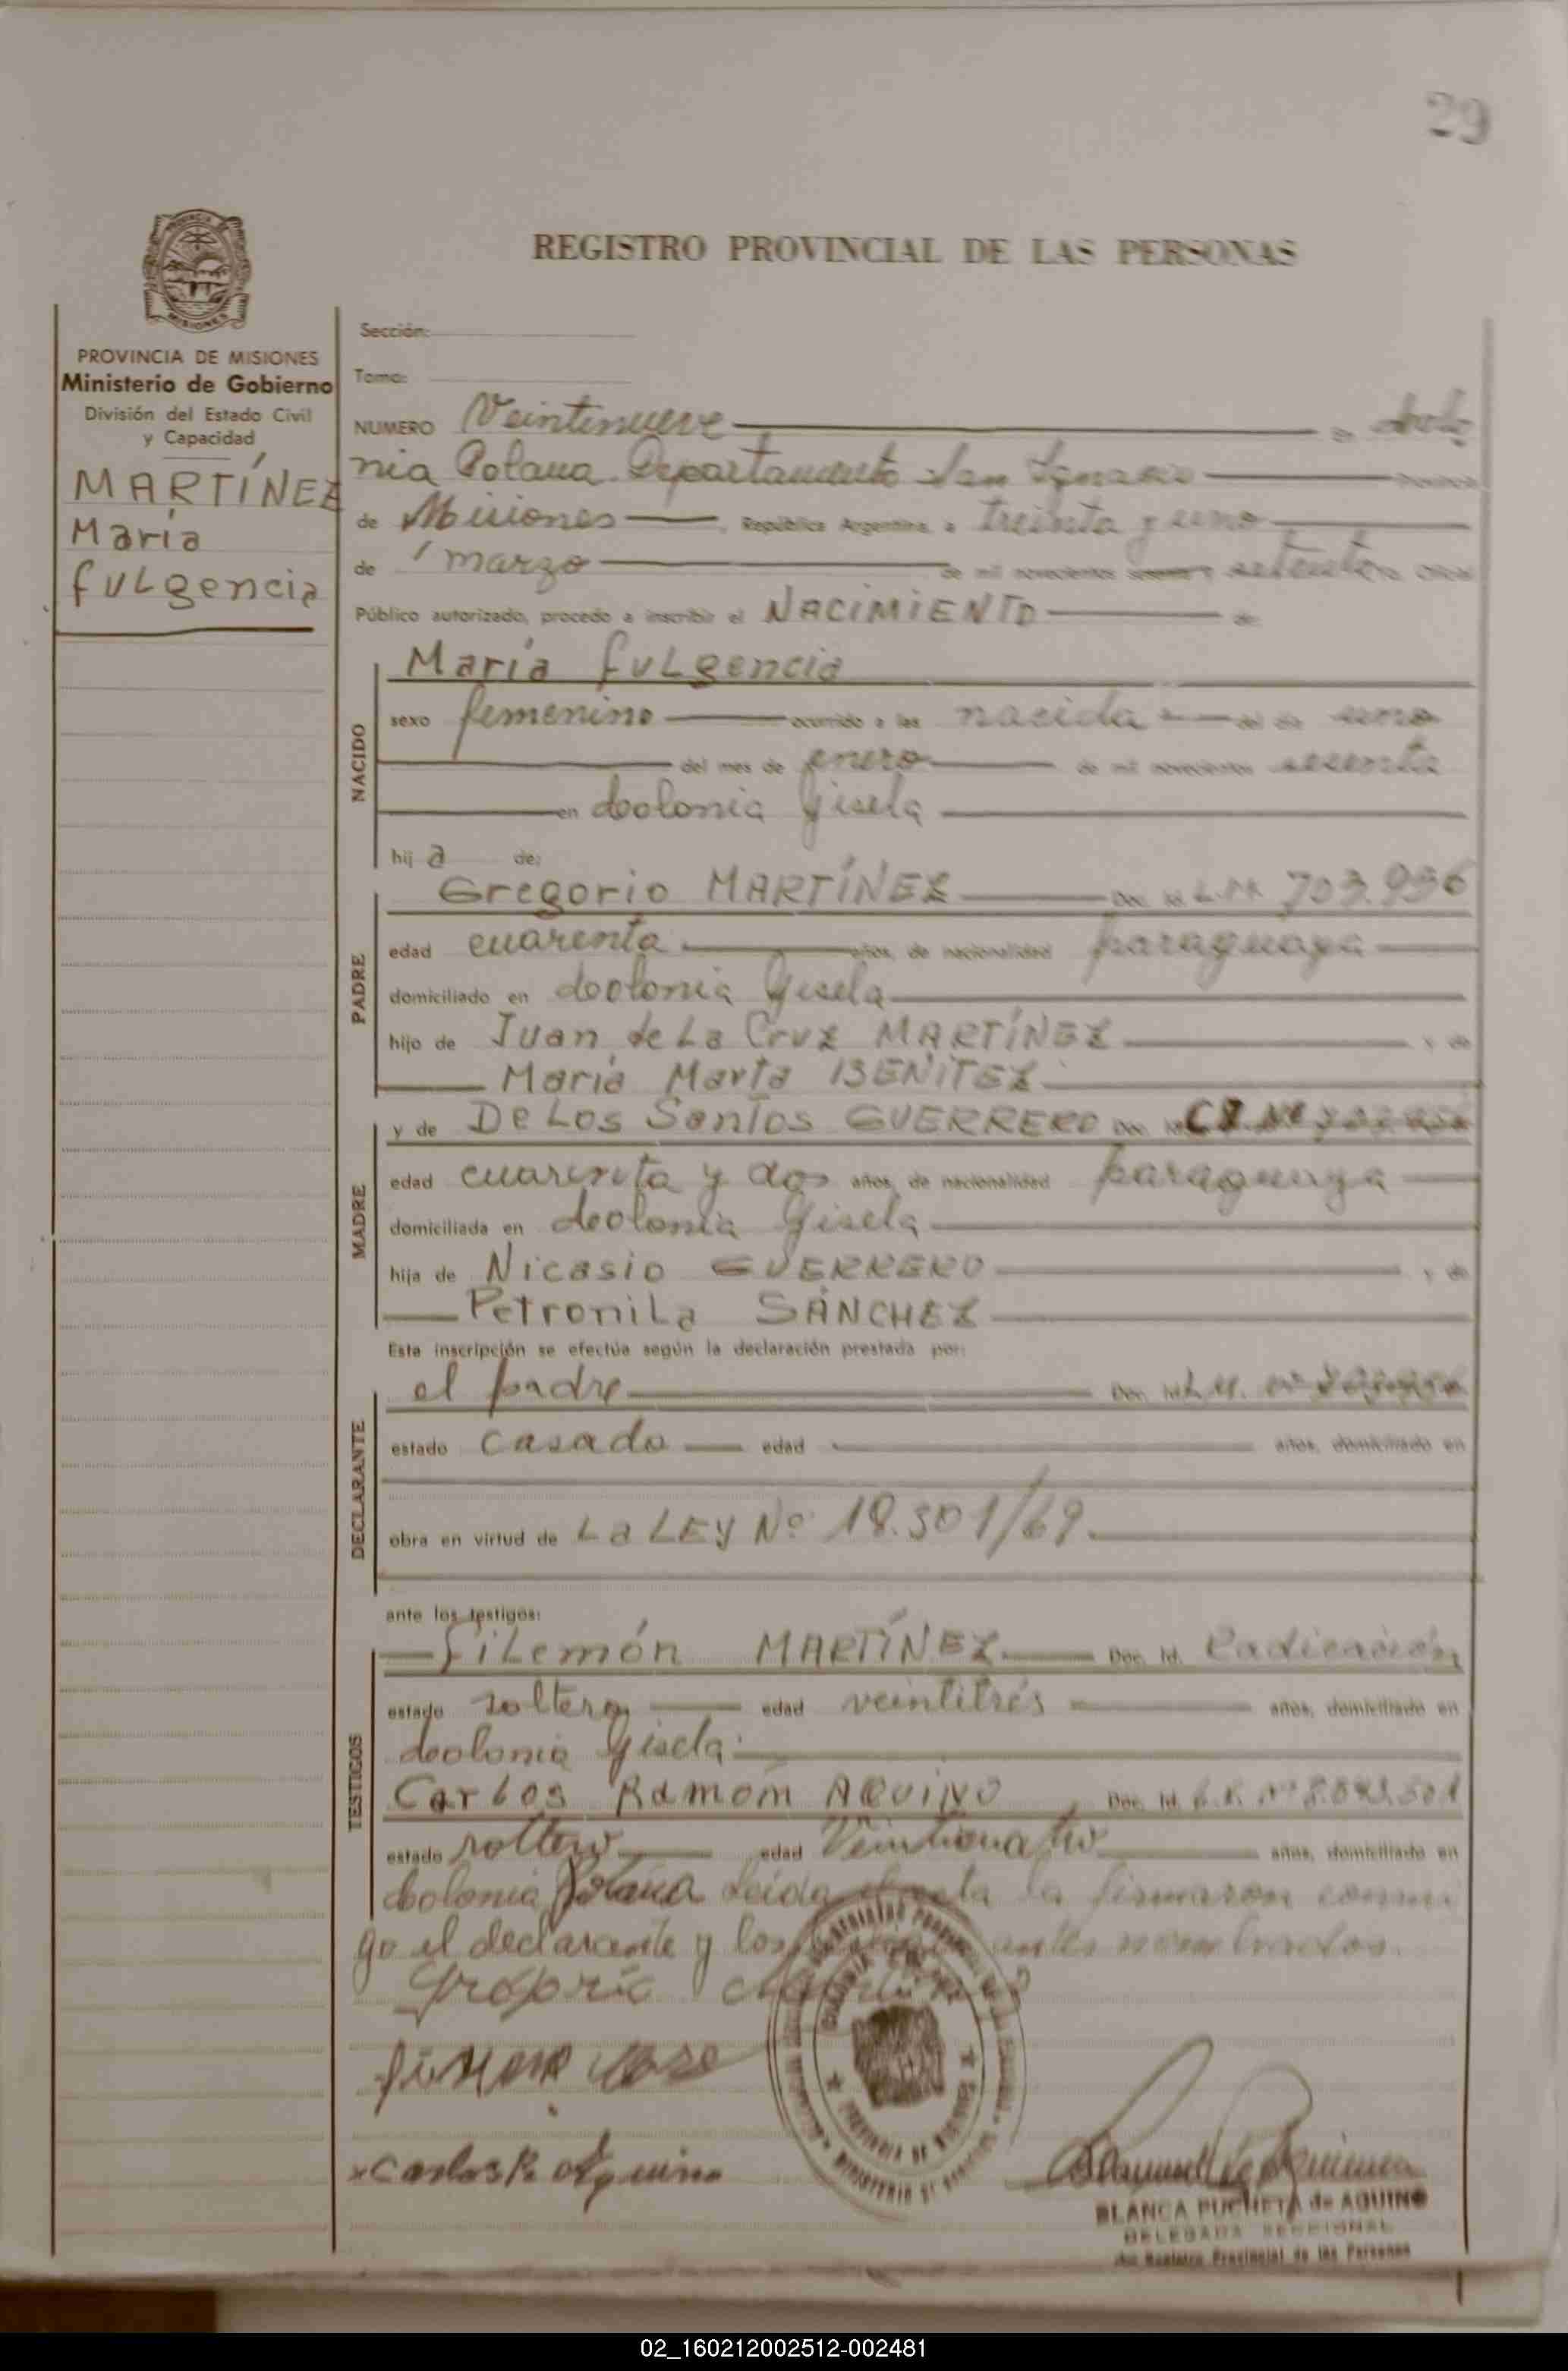 29
REGISTRO PROVINCIAL DE LAS PERSONAS
PROVINCIA DE MISIONES
Ministerio de Gobierno
División del Estado Civil
y Capacidad
MARTÍNEZ
María
fulgencia
Sección:
Tomo:
NUMERO Veintinueve en Colo
nia Polana Departamento San Ignacio Provincia
de Misiones, República Argentina, a treinta y uno
de marzo de mil novecientos setenta Oficial
Público autorizado, procedo a inscribir el NACIMIENTO de
NACIDO
María fulgencia
sexo femenino ocurrido a las nacida del día uno
del mes de enero de mil novecientos sesenta
en Colonia Gisela
hija de:
PADRE
Gregorio MARTÍNEZ Doc. Id.
edad cuarenta años, de nacionalidad paraguaya
domiciliado en Colonia Gisela
hijo de Juan de La Cruz MARTÍNEZ y de
María Marta BENÍTEZ
MADRE
y de De Los Santos GUERRERO Doc. Id.
edad cuarenta y dos años, de nacionalidad paraguaya
domiciliada en Colonia Gisela
hija de Nicasio GUERRERO y de
Petronila SÁNCHEZ
Esta inscripción se efectúa según la declaración prestada por:
DECLARANTE
el padre Doc. Id. L.M. Nº
estado casado edad años, domiciliado en
obra en virtud de La LEY Nº 18.301/69.
ante los testigos:
TESTIGOS
filemón MARTÍNEZ Doc. Id. Radicación
estado soltero edad veintitrés años, domiciliado en
Colonia Gisela
Carlos Ramón AQUINO Doc. Id.
estado soltero edad Veinticuatro años, domiciliado en
Colonia Polana Leída el acta la firmaron conmi
go el declarante y los antes nombrados.
Carlos R. Aquino
BLANCA PUCHETA de AQUINO
DELEGADA SECCIONAL
del Registro Provincial de las Personas
02_160212002512-002481